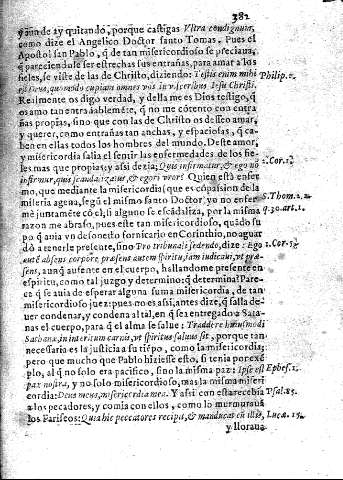 382
y aun de ay quitando, porque castigas Vltra condignum,
como dize el Angelico Doctor santo Tomas. Pues el
Apostol san Pablo, q̃ de tan misericordioso se preciaua,
q̃ pareciendole ser estrechas sus entrañas, para amar a los
fieles, se viste de las de Christo, diziendo: Testis enim mihi
est Deus, quomodo cupiam omnes vos in visceribus Iesu Christi.
Philip. 1.
Realmente os digo verdad, y della me es Dios testigo, q̃
os amo tan entrañablemẽte, q̃ no me cõtento con entra
ñas propias, sino que con las de Christo os desseo amar,
y querer, como entrañas tan anchas, y espaciosas, q̃ ca-
ben en ellas todos los hombres del mundo. Deste amor,
y misericordia salia el sentir las enfermedades de los fie-
les mas que propias; y assi dezia; Quis infirmatur, & ego no
2. Cor. 1.
infirmor, quis scandalizatur, & ego nõ vror? Quien està enfer
mo, que mediante la misericordia (que es cõpasion de la
miseria agena, segũ el mismo santo Doctor) yo no enfer
S. Thom. 2. 2.
me juntamẽte cõ el, si alguno se escãdaliza, por la misma
q. 30. art. 1.
razon me abraso, pues este tan misericordioso, quãdo su
po q̃ auia vn desonesto fornicario en Corinthio, no aguar
dò a tenerle presente, sino Pro tribunali sedendo, dize: Ego
1. Cor. 5.
autẽ absens corpore præsens autem spiritu, iam iudicaui, vt præ
sens, aunq̃ ausente en el cuerpo, hallandome presente en
espiritu, como tal juzgo y determino: q̃ determina? Pare-
ce q̃ se auia de esperar alguna suma misericordia, de tan
misericordioso juez: pues no es assi, antes dize, q̃ salla de-
uer condenar, y condena al tal, en q̃ sea entregado a Sata-
nas el cuerpo, para q̃ el alma se salue: Traddere huiusmodi
Sathanæ, in interitum carnis, vt spiritus saluus sit, porque tan
necessaria es la justicia a su tiẽpo, como la misericordia;
pero que mucho que Pablo hiziesse esto, si tenia por exẽ
plo, al q̃ no solo era pacifico, sino la misma paz: Ipse est
Ephes. 2.
pax nostra, y no solo misericordioso, mas la misma miseri
cordia: Deus meus, misericordia mea. Y assi con estar echia
Psal. 58.
a los pecadores, y comia con ellos, como lo murmurauã
los Fariseos: Quia hic peccatores recipit, & manducat cũ illis,
Lucæ. 15.
y lloraua